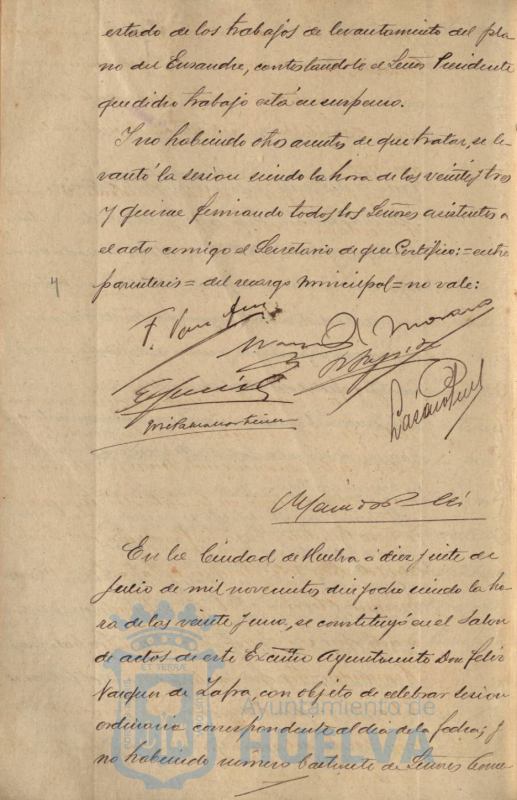 estado de los trabajos de levantamiento del pla-
no del Ensanche, contestandole el Señor Presidente
que dicho trabajo está en suspenso.
Y no habiendo otros asuntos de que tratar, se le-
vantó la sesion siendo la hora de las veinte y tres
y quince firmando todos los Señores asistentes a
el acto conmigo el Secretario de que Certifico:= entre
parentesis = del recargo municipal = no vale:
4
F.
Moreno
En la Ciudad de Huelva a diez y siete de
Julio de mil novecientos diez y ocho siendo la ho-
ra de las veinte y una, se constituyó en el Salon
de actos de este Excmo Ayuntamiento Don Felix
Vazquez de Zafra, con objeto de celebrar sesion
ordinaria correspondiente al dia de la fecha; y
no habiendo numero bastante de Señores Conce
Ayuntamiento de
HUELVA